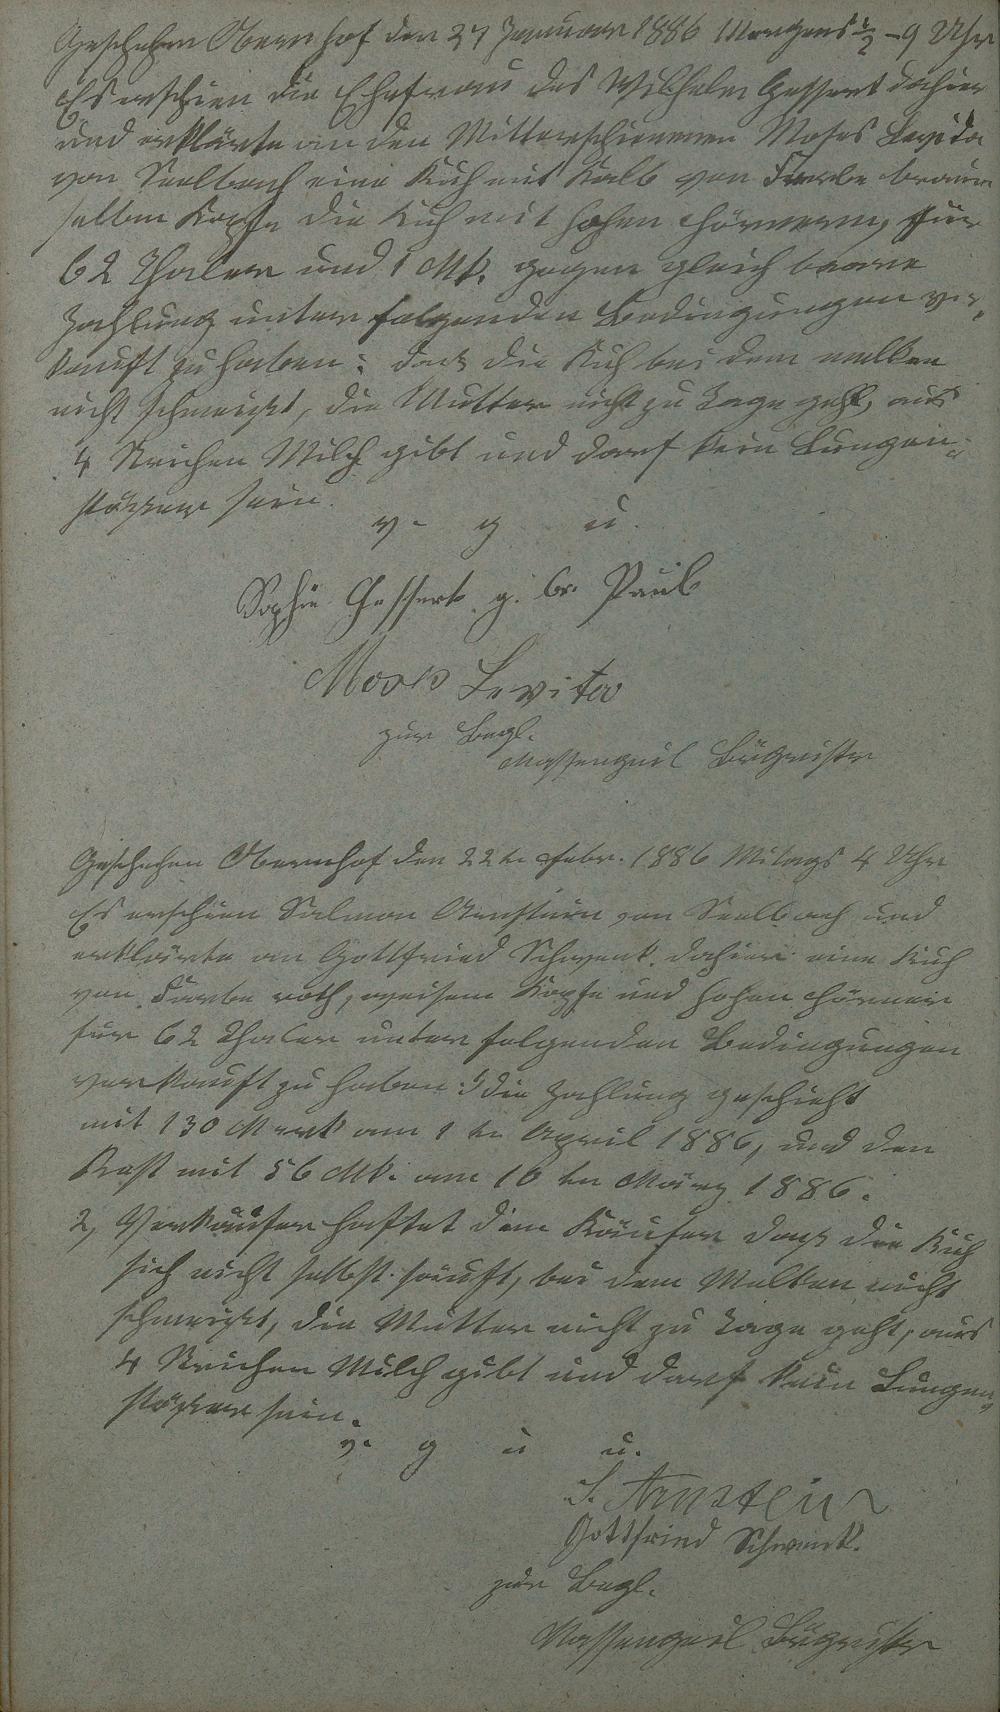 Geschehen Obernhof den 27 Januar 1886 Morgens ½-9 Uhr
Es erschien die Ehefrau des Wilhelm Gessert dahier
und erklärte an den Mitterschienenen Moses Levita
von Seelbach eine Kuh mit Kalb von Farbe braun
selben Kopfe die Kuh mit hohen Hörnern, für
62 Thaler und 1 Mk. gegen gleich baare
Zahlung unter folgenden Bedingungen ver-
kauft zu haben: daß die Kuh bei dem melken
nicht schmeißt, die Mutter nicht zu Tage geht, aus
4 Strichen Milch gibt und darf kein Lungen-
stößer sein.
v. g u.
Sophie Gessert g. br. Paul
Moses Levita
zur Begl.
Massengeil Bürgmstr
Geschehen Obernhof den 22te Febr. 1886 Mitags 4 Uhr
Es erschien Salmon Arnstein von Seelbach und
erklärte an Gottfried Schwenk dahier eine Kuh
von Farbe roth, weisem Kopfe und hohen Hörner
für 62 Thaler unter folgenden Bedingungen
verkauft zu haben: 1) die Zahlung geschieht
mit 130 Mark am 1ten April 1886, und den
Rest mit 56 Mk. am 10ten März 1886.
2, Verkäufer haftet dem Käufer daß die Kuh
sich nicht selbst säuft, bei dem Melken nicht
schmeißt, die Mutter nicht zu Tage geht, aus
4 Strichen Milch gibt und darf kein Lungen-
stößer sein.
v. g u u.
S. Arnstein
Gottfried Schwenk.
zur Begl.
Massengeil Bürgmstr